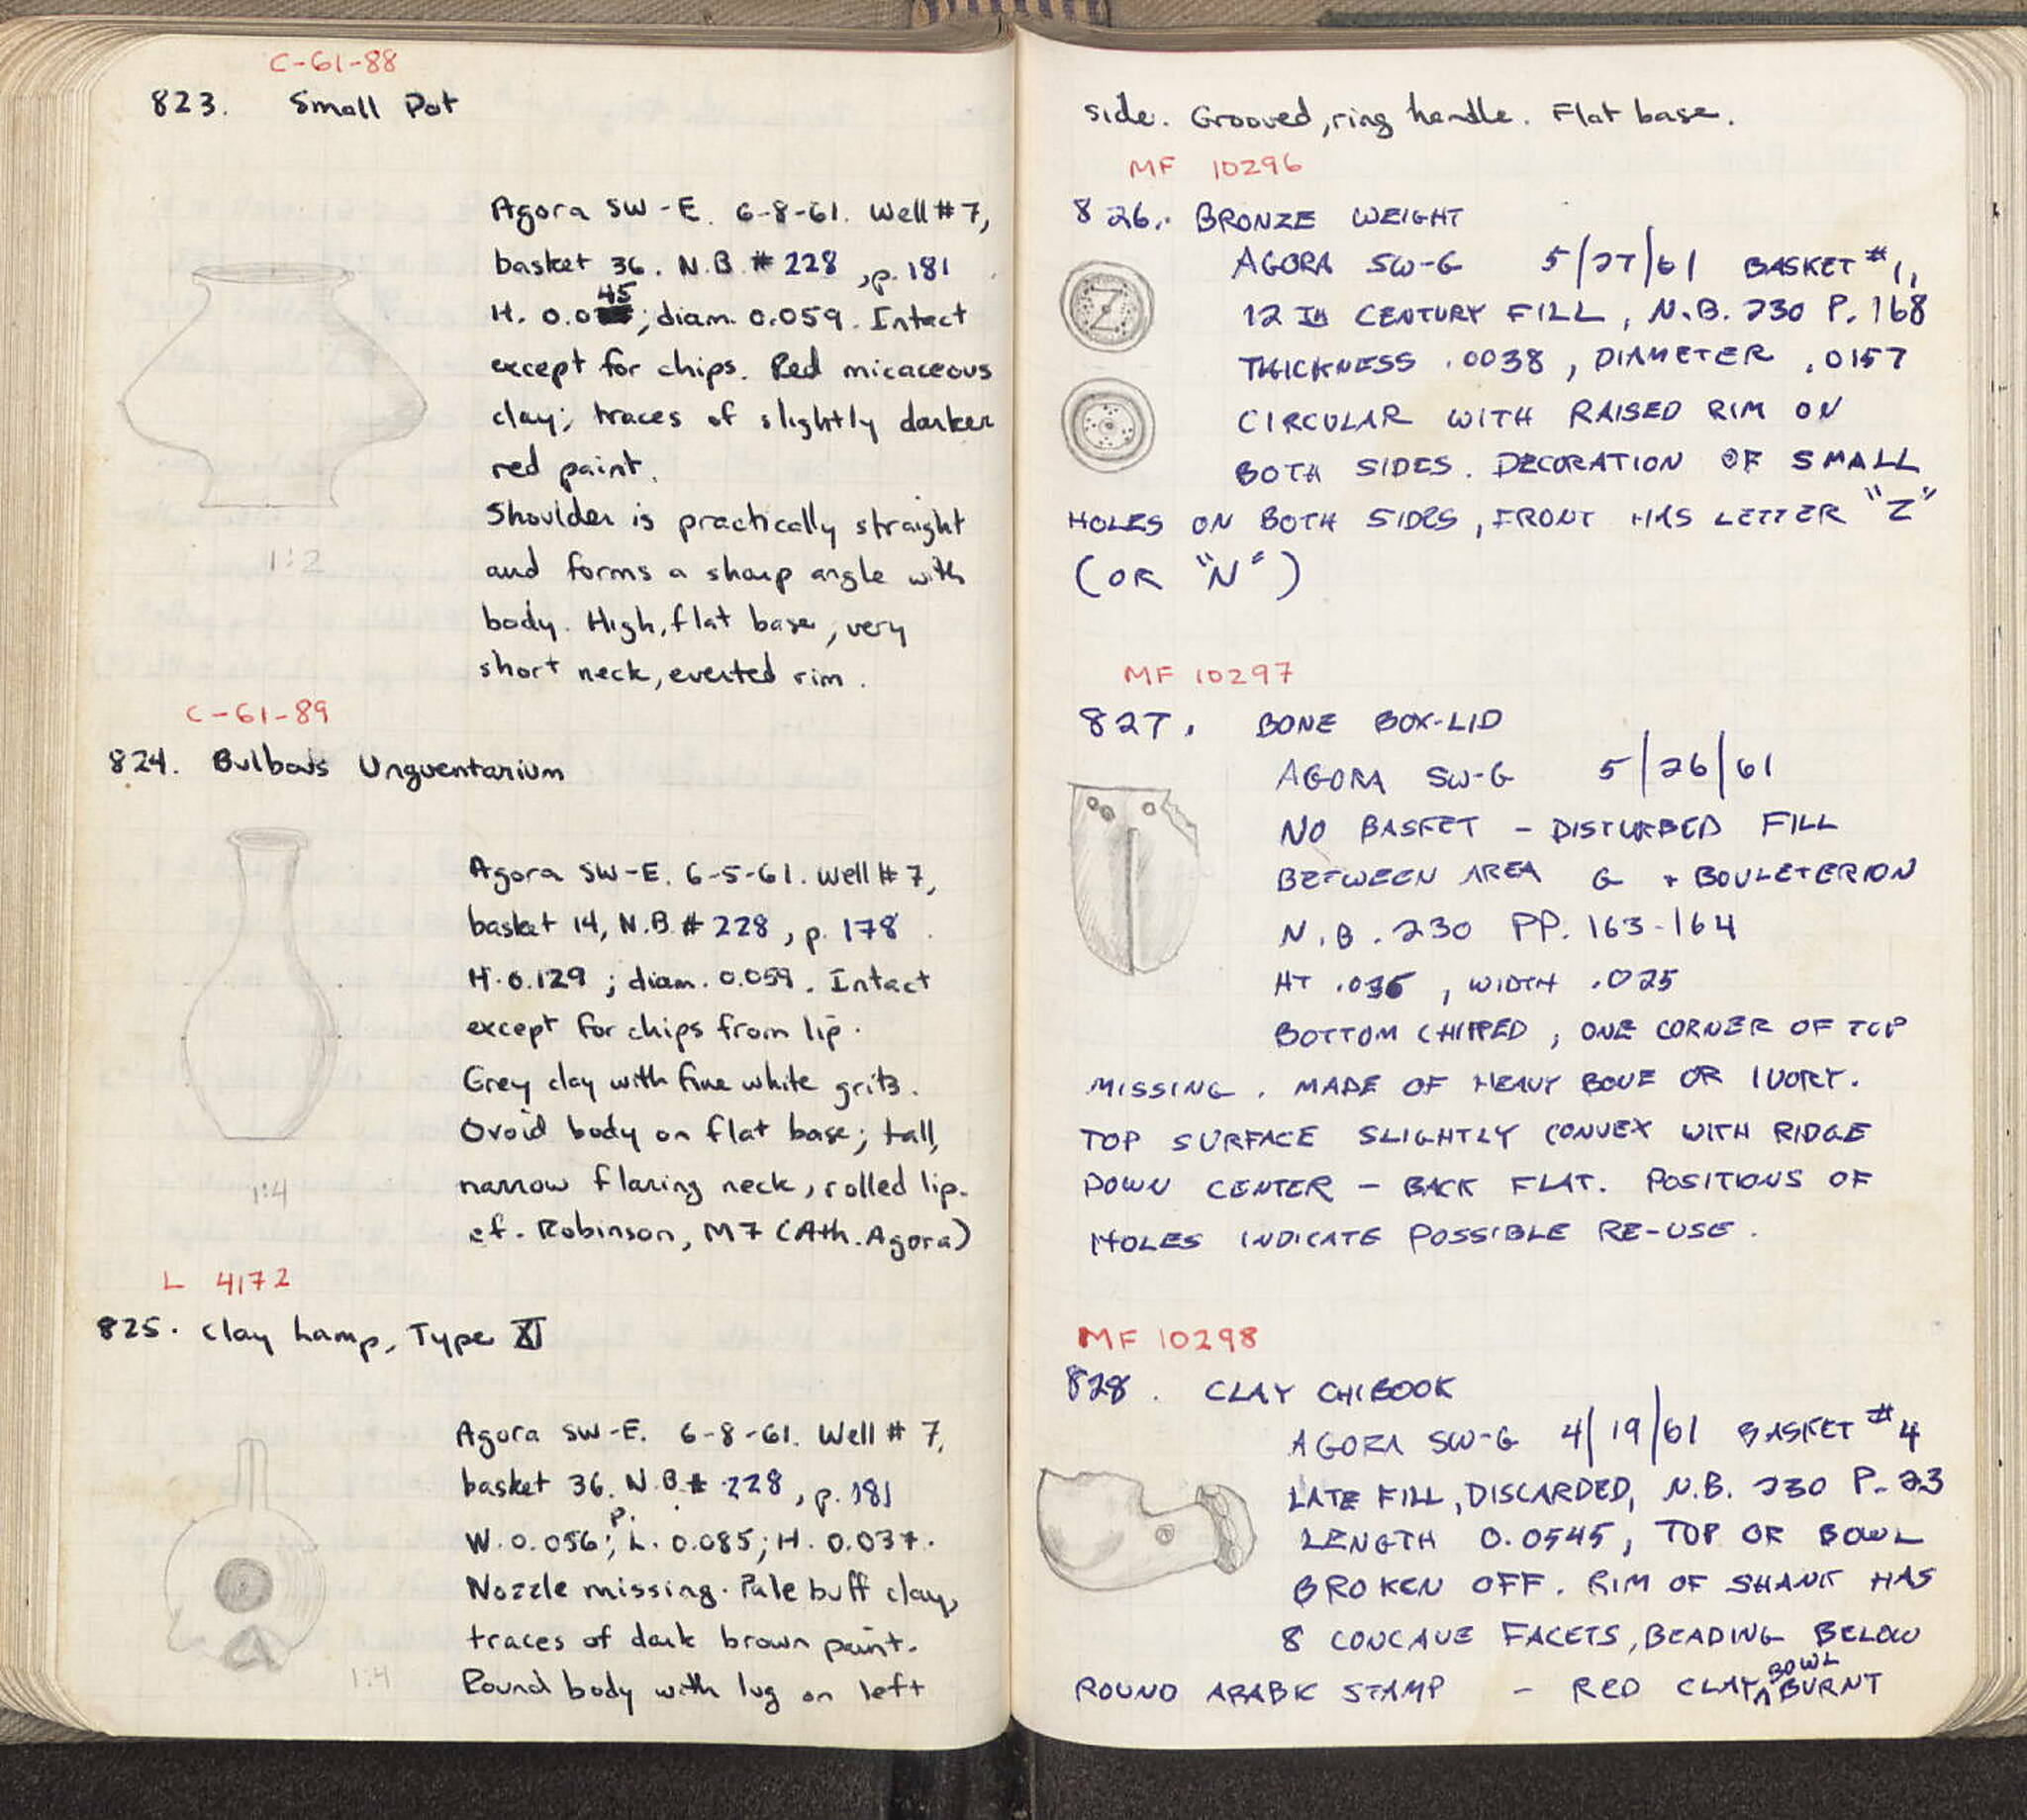 C-61-88
823. Small Pot
Agora SW-E. 6-8-61. Well #7,
basket 36. N.B. #228, p. 181
45
H. 0.0; diam. 0.059. Intact
except for chips. Red micaceous
clay; traces of slightly darker
red paint.
Shoulder is practically straight
and forms a sharp angle with
body. High, flat base, very
short neck, everted rim.
1:2
C-61-89
824. Bulbous Unguentarium
Agora SW-E. 6-5-61. Well #7,
basket 14, N.B. #228, p. 178
H. 0.129; diam. 0.059. Intact
except for chips from lip.
Grey clay with fine white grits.
Ovoid body on flat base; tall,
narrow flaring neck, rolled lip.
cf. Robinson, M7 (Ath. Agora)
1:4
L 4172
825. Clay Lamp, Type XI
Agora SW-E. 6-8-61. Well #7,
basket 36. N.B. #228, p. 181
P.
W. 0.056; L. 0.085; H. 0.037.
Nozzle missing. Pale buff clay,
traces of dark brown paint.
Round body with lug on left
1:4
side. Grooved, ring handle. Flat base.
MF 10296
826. BRONZE WEIGHT
AGORA SW-G 5/27/61 BASKET #1,
12TH CENTURY FILL, N.B. 230 P. 168
THICKNESS .0038, DIAMETER .0157
CIRCULAR WITH RAISED RIM ON
BOTH SIDES. DECORATION OF SMALL
HOLES ON BOTH SIDES, FRONT HAS LETTER "Z"
(OR "N")
MF 10297
827. BONE BOX-LID
AGORA SW-G 5/26/61
NO BASKET - DISTURBED FILL
BETWEEN AREA G + BOULETERION
N.B. 230 PP. 163-164
HT .036, WIDTH .025
BOTTOM CHIPPED, ONE CORNER OF TOP
MISSING. MADE OF HEAVY BONE OR IVORY.
TOP SURFACE SLIGHTLY CONVEX WITH RIDGE
DOWN CENTER - BACK FLAT. POSITIONS OF
HOLES INDICATE POSSIBLE RE-USE.
MF 10298
828. CLAY CHIBOOK
AGORA SW-G 4/19/61 BASKET #4
LATE FILL, DISCARDED, N.B. 230 P. 23
LENGTH 0.0545, TOP OF BOWL
BROKEN OFF. RIM OF SHANK HAS
8 CONCAVE FACETS, BEADING BELOW
BOWL
ROUND ARABIC STAMP - RED CLAY ^ BURNT